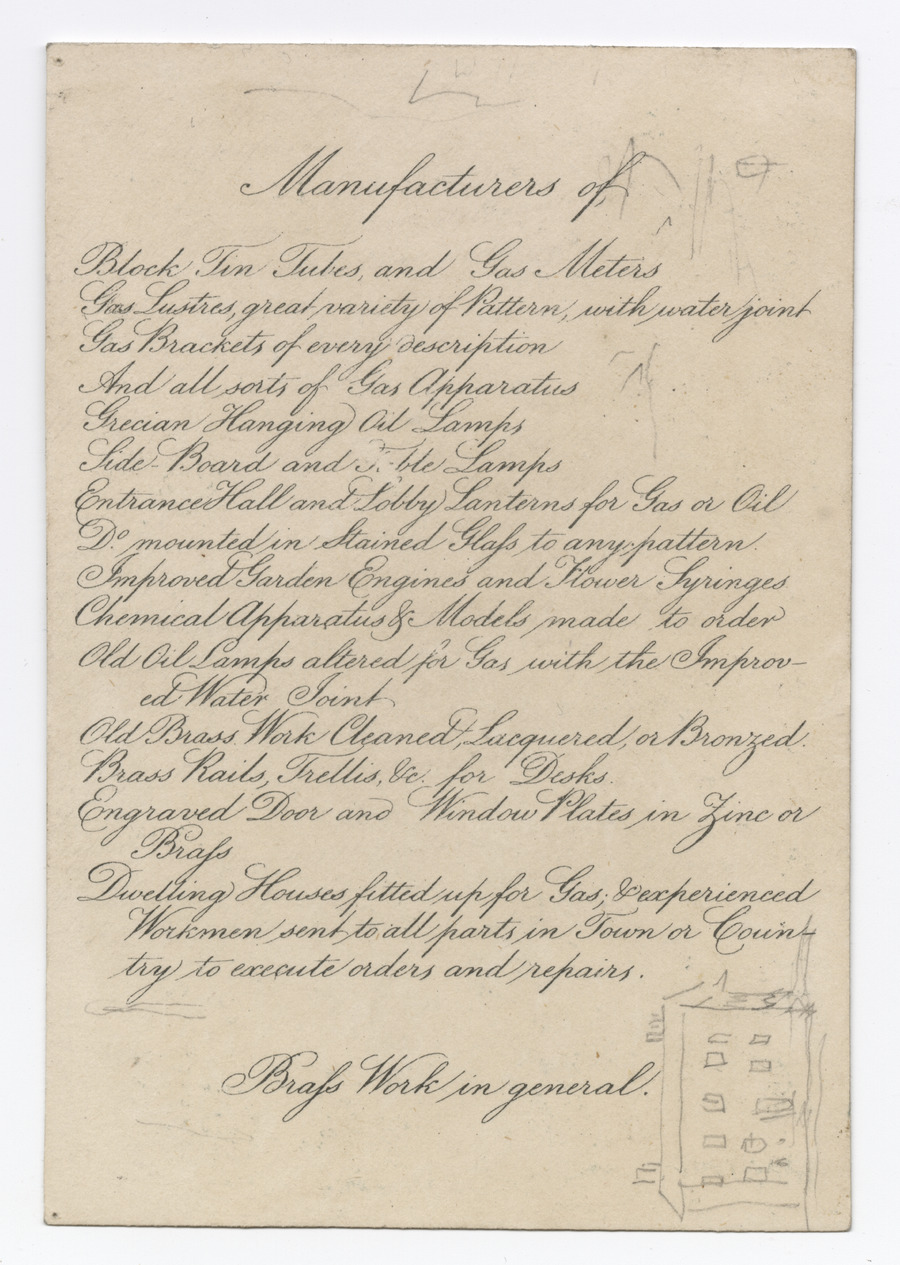 Manufacturers of
Block Tin Tubes, and Gas Meters
Gas Lustres, great variety of Pattern, with water joint
Gas Brackets of every description
And all sorts of Gas Apparatus
Grecian Hanging Oil Lamps
Side-Board and Table Lamps
Entrance Hall and Lobby Lanterns for Gas or Oil
Do. mounted in Stained Glaſs to any pattern.
Improved Garden Engines and Flower Syringes
Chemical Apparatus & Models made to order
Old Oil Lamps altered for Gas with the Improv-
ed Water Joint
Old Brass Work Cleaned, Lacquered, or Bronzed.
Brass Rails, Trellis, &c. for Desks.
Engraved Door and Window Plates in Zinc or
Braſs
Dwelling Houses fitted up for Gas; & experienced
Workmen sent to all parts in Town or Coun-
try to execute orders and repairs.
Braſs Work in general.